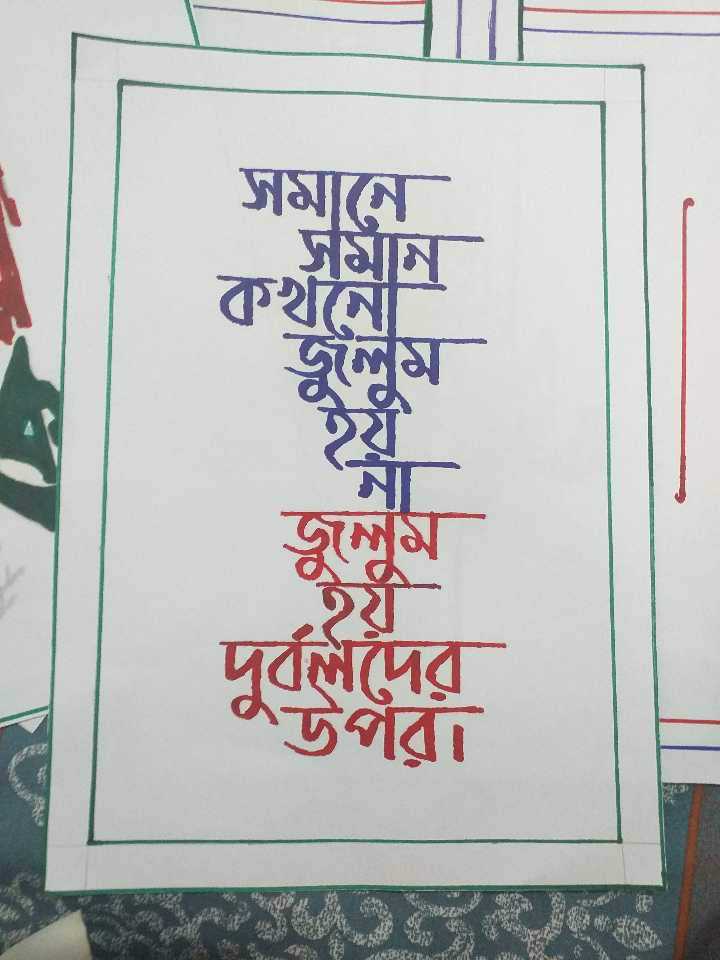 সমানে
সমান
কখনো
জুলুম
হয়
না
জুলুম
হয়
দুর্বলদের
উপর।